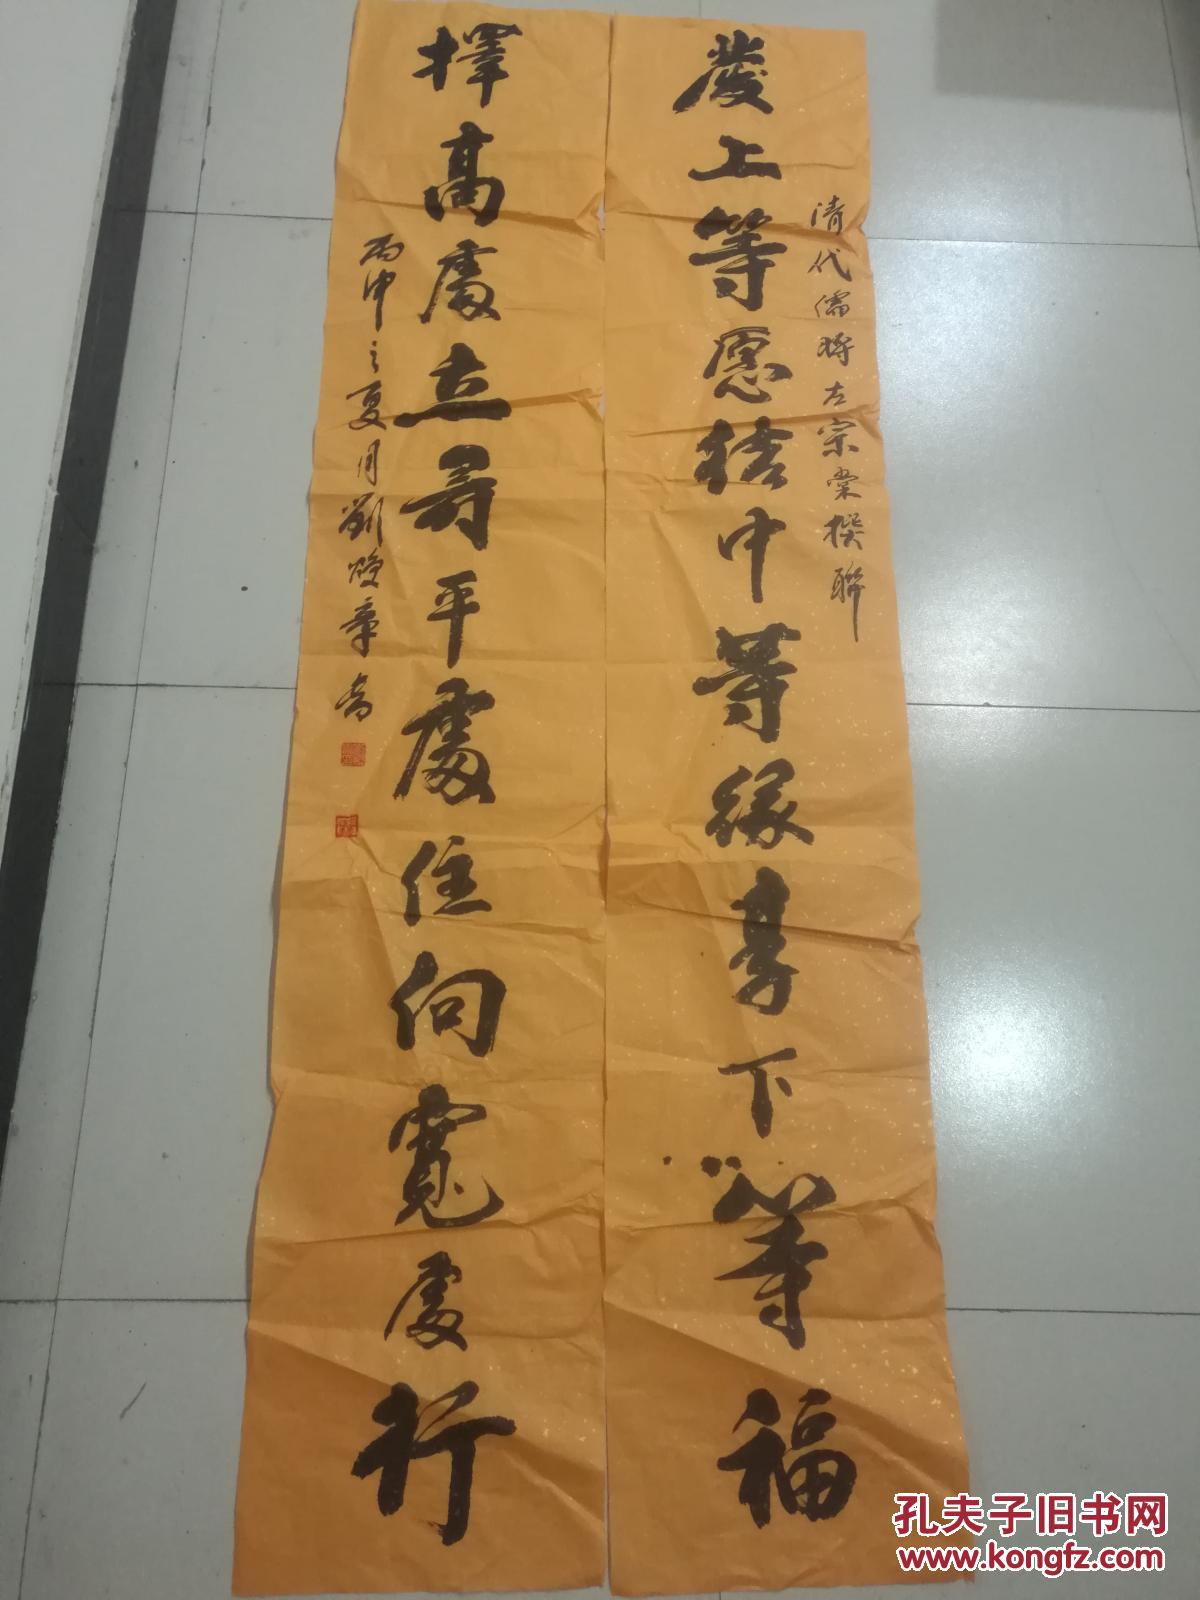 清代儒將左宗棠撰聯
發上等愿結中等緣享下等福
擇高處立尋平處住向寬處行
丙申之夏月劉煥章書
孔夫子旧书网
www.kongfz.com